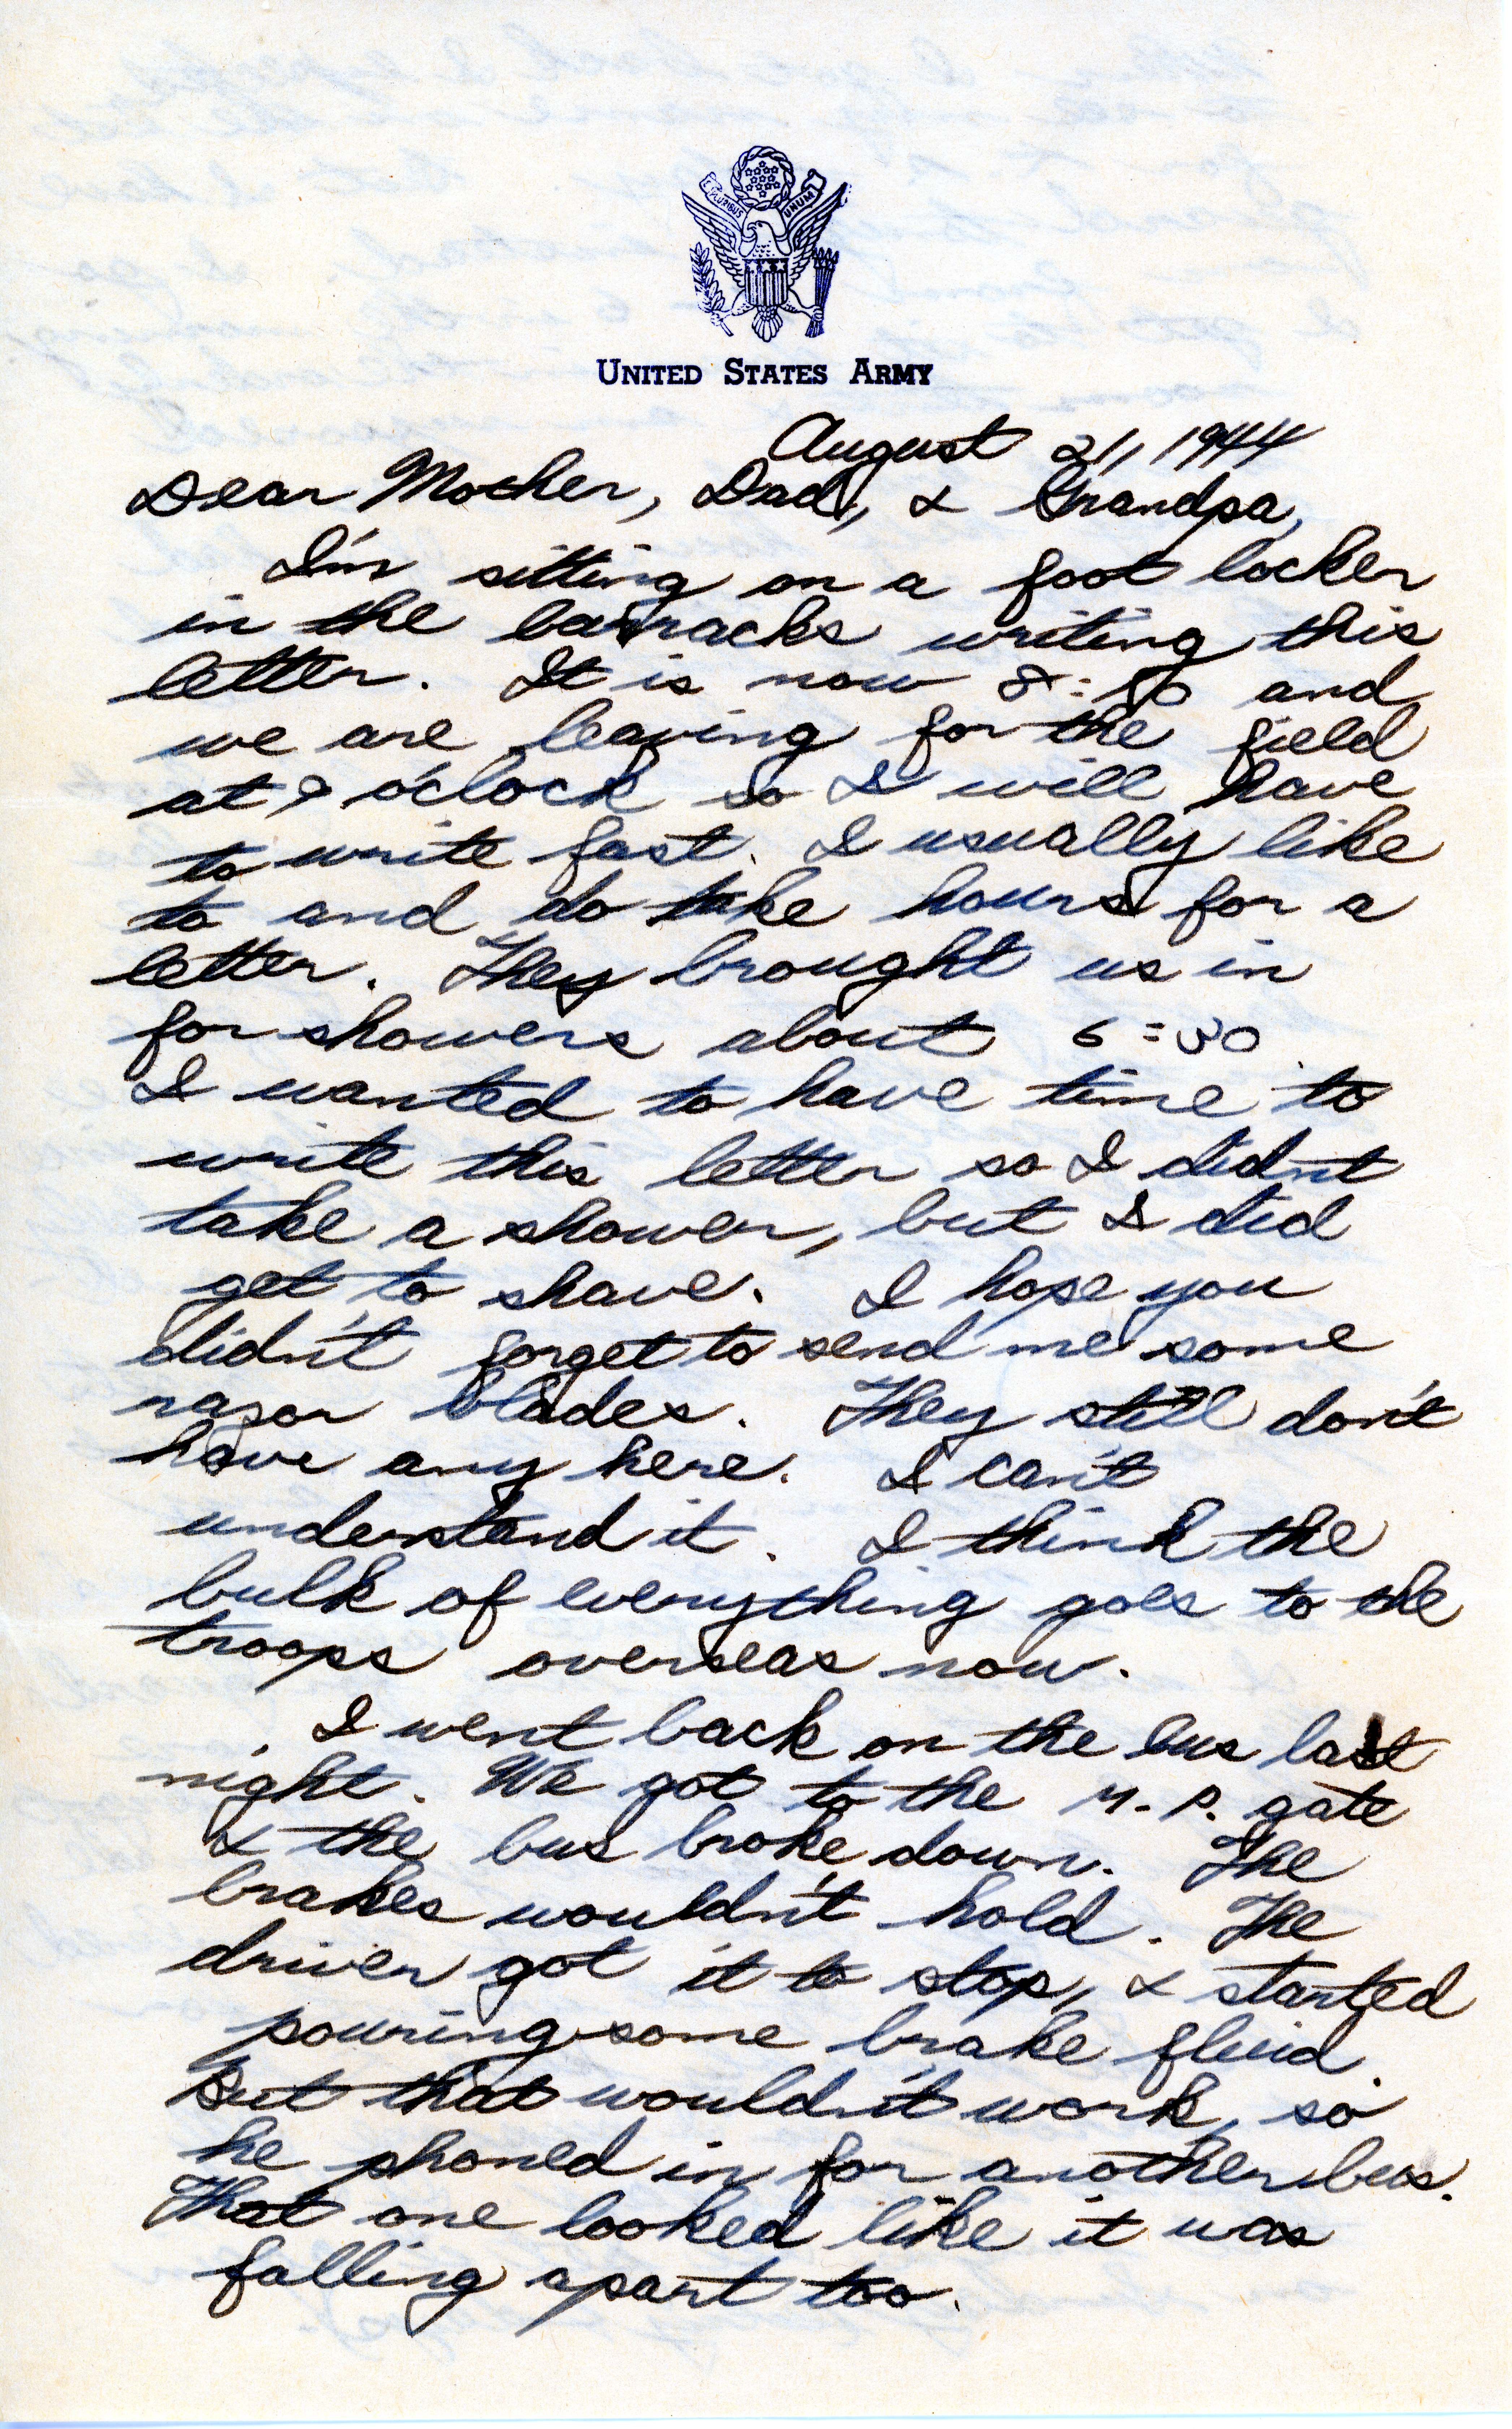 E PLURIBUS UNUM
UNITED STATES ARMY
August 21, 1944
Dear Mother, Dad, & Grandpa,
I'm sitting on a foot locker
in the barracks writing this
letter. It is now 8:50 and
we are leaving for the field
at 9 o'clock so I will have
to write fast. I usually like
to and do take hours for a
letter. They brought us in
for showers about 6:30
I wanted to have time to
write this letter so I didn't
take a shower, but I did
get to shave. I hope you
didn't forget to send me some
razor blades. They still don't
have any here. I can't
understand it. I think the
bulk of everything goes to the
troops overseas now.
I went back on the bus last
night. We got to the M.P. gate
& the bus broke down. The
brakes wouldn't hold. The
driver got it to stop, & started
pouring some brake fluid.
But that wouldn't work, so
he phoned in for another bus.
That one looked like it was
falling apart too.